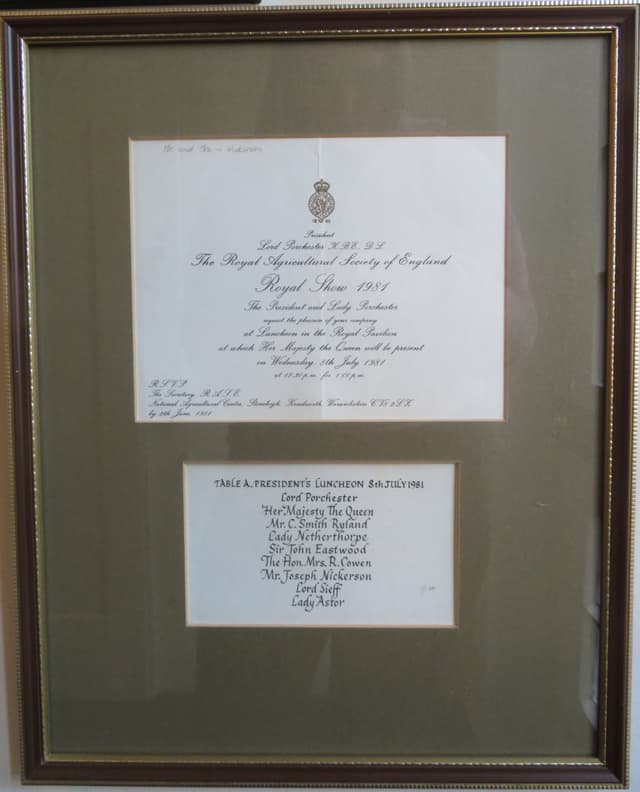 Mr and Mrs
President
Lord Porchester K.B.E. D.L.
The Royal Agricultural Society of England
Royal Show 1981
The President and Lady Porchester
request the pleasure of your company
at Luncheon in the Royal Pavilion
at which Her Majesty the Queen will be present
on Wednesday, 8th July 1981
at 12.30 p.m. for 1.00 p.m.
R.S.V.P.
The Secretary R.A.S.E.
National Agricultural Centre, Stoneleigh, Kenilworth, Warwickshire CV8 2LX
by June, 1981
TABLE A, PRESIDENT'S LUNCHEON 8th JULY 1981
Lord Porchester
Her Majesty The Queen
Mr. C. Smith Ryland
Lady Netherthorpe
Sir John Eastwood
The Hon. Mrs. R. Cowen
Mr. Joseph Nickerson
Lord Sieff
Lady Astor